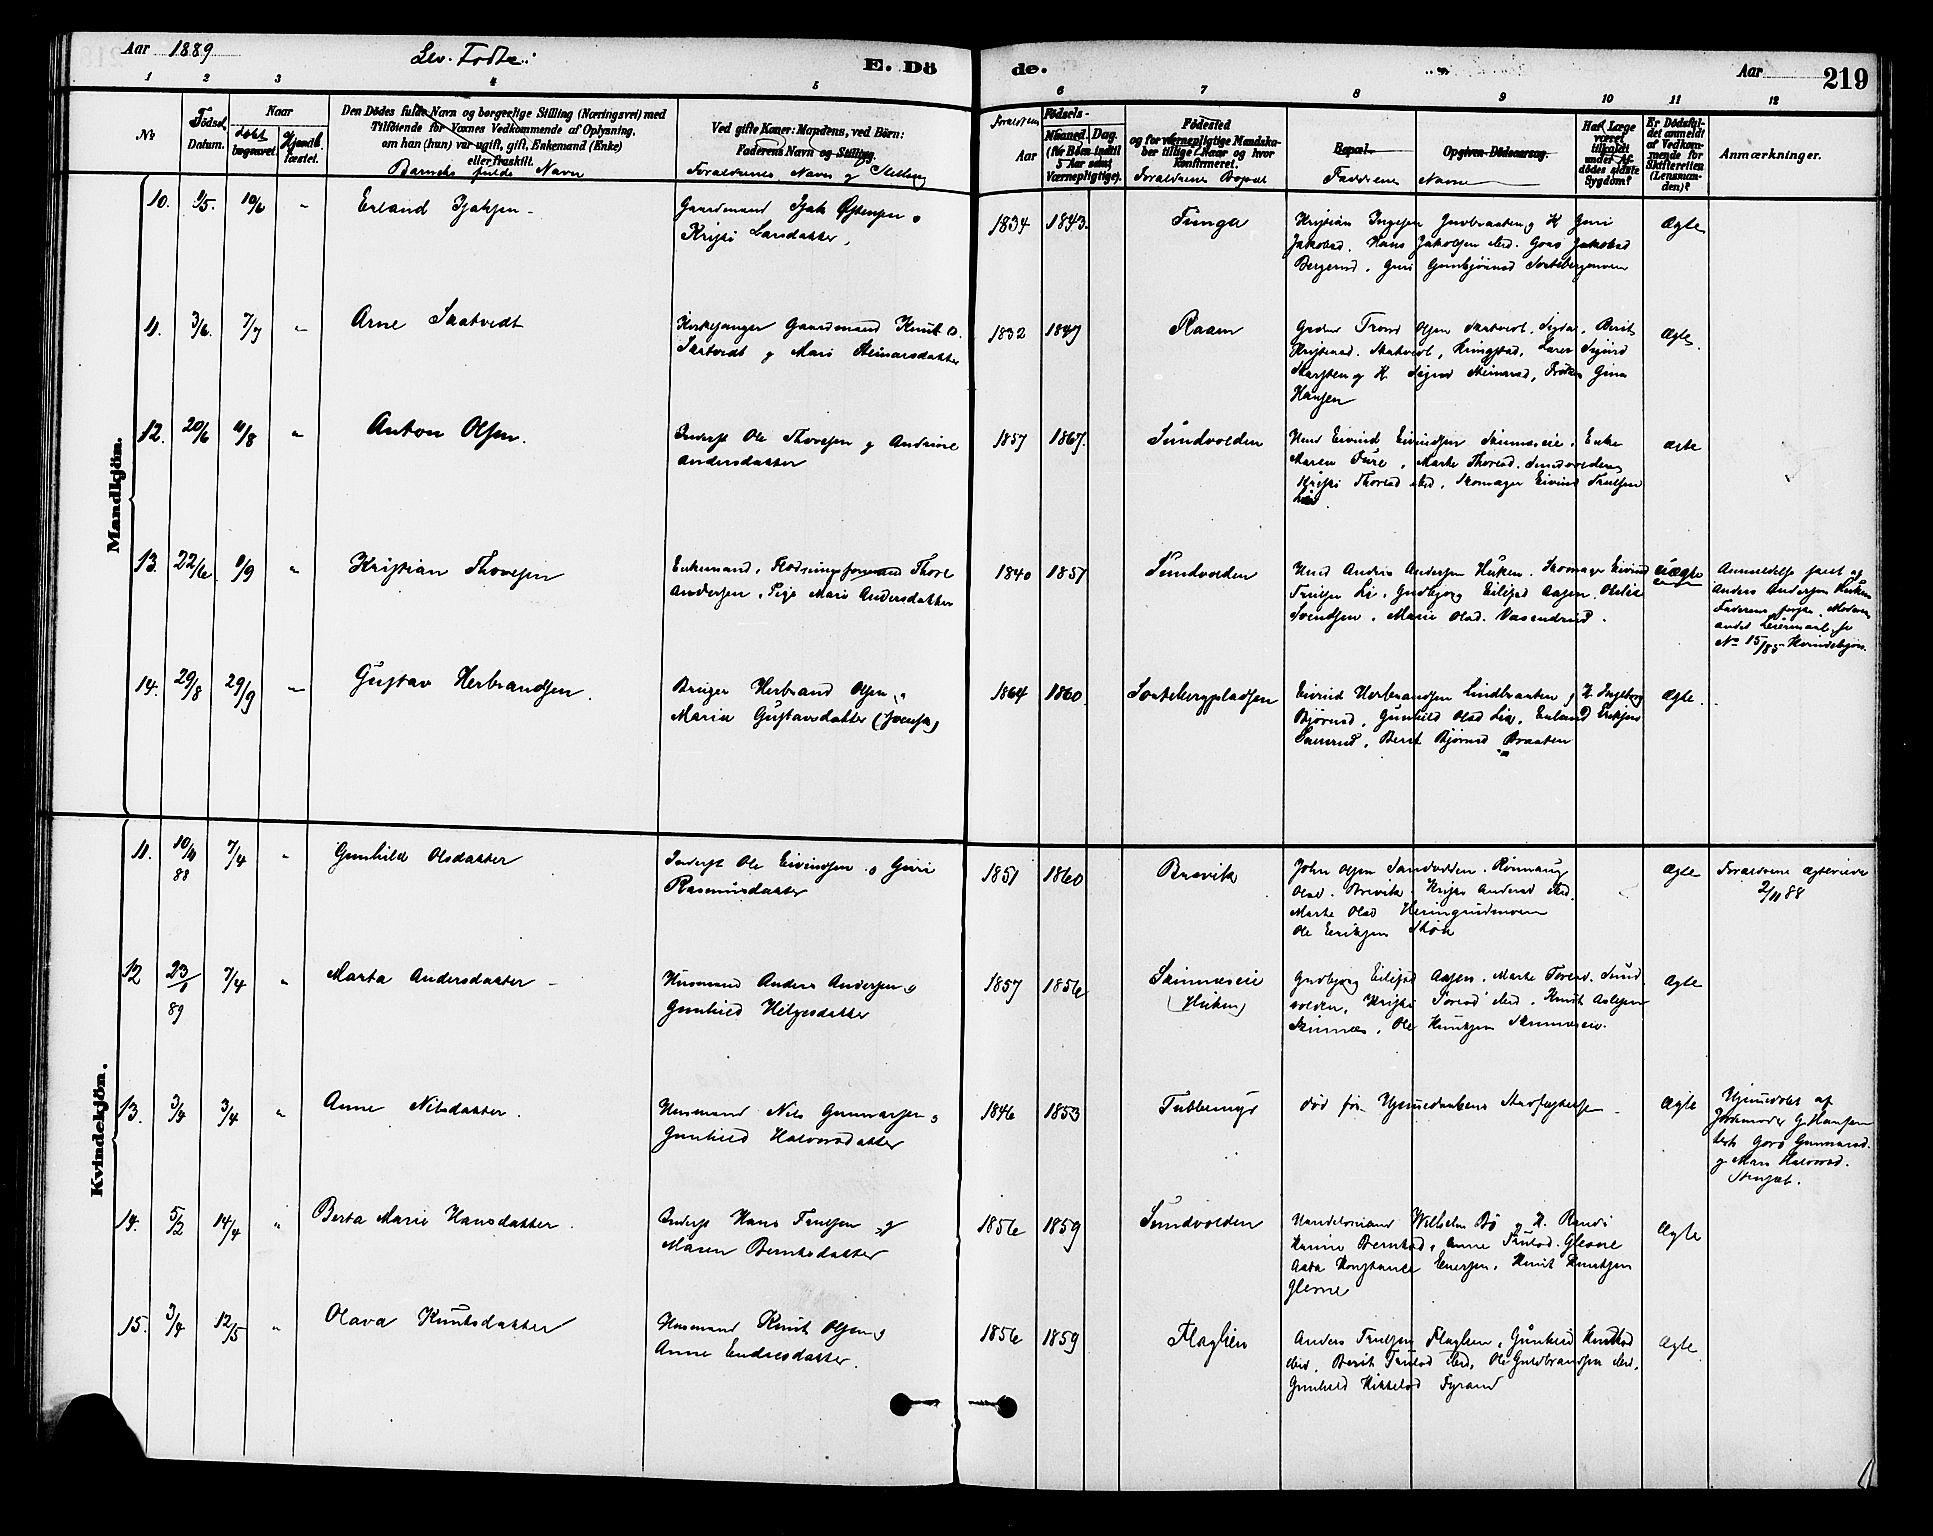 Aar 1889
Lev. Fødte.
E. Dö
de.
Aar
219
1 2 3 4 5 6 7 8 9 10 11 12
No
Födsels Datum.
Naar
döbt
begravet.
Hjemdt.
fæstet.
Den Dödes fulde Navn og borgerlige Stilling (Næringsvei) med
Tilföiende for Voxnes Vedkommende af Oplysning,
om han (hun) var ugift, gift, Enkemand (Enke)
eller fraskilt.
Barnets fulde Navn
Ved gifte Koner: Mandens, ved Börn:
Faderens Navn og Stilling.
Forældrenes Navn og Stilling
Forældrenes
Aar
Födsels-
Maaned. Dag.
(for Börn indtil
5 Aar samt
Værnepligtige).
Födested
og for værnepligtige Mandska-
ber tillige Naar og hvor
konfirmeret.
Forældrenes Bopæl
Bopæl.
Faddernes
Opgiven Dödsaarsag.
Navne
Har Læge
været
tilkaldt
under Af-
dödes sidste
Sygdom?
Er Dödsfal-
det anmeldt
af Vedkom-
mende for
Skifteretten
(Lensman-
den)?
Anmærkninger.
Mandkjön.
10. 9/5. 10/6 " Erland Isaksen
Gaardmand Isak Østensen o
Kristi Larsdatter,
1834 1843. Tunga
Kristian Ingesen Gudbraaten og K Guri
Jakobsd. Hans Jakobsen sted. Goro Jakobsd
Bergerud, Guri Gunbjørnsd Sortebergmoen
Ægte
11. 3/6. 7/7 " Arne Skatvedt
Kirkesanger Gaardmand Knut O.
Skatvedt og Mari Steinarsdatter
1832 1847 Raaen
Gaardm Trond Olsen Skatvedt, Sigdal, Berit
Kristensd. Skatvedt, Ringstad, Lærer Sigurd
Skarsten og K. Sigrid Steinarsd, Frøken Gina
Hansen
Ægte.
12. 20/6 11/8 " Anton Olsen.
Inderst Ole Thoresen og Andrine
Andersdatter
1857 1867. Sundvolden
Husmd Eivind Eivindsen Skinneseie. Enke
Maren Ture, Marte Thoresd. Sundvolden,
Kristi Thoresd sted, Skomager Eivind Trulsen
Lie
ægte
13. 22/6 1/9 " Kristian Thoresen
Enkemand, Flødningsformand Thore
Andersen, Pige Mari Andersdatter
1840 1851 Sundvolden
Husmd Anders Andersen Huken. Skomager Eivind
Trulsen Li, Gudbjørg Eilifsd Aasen, Oleliæ
Svendsen, Marie Olsd. Vasendrud.
Uægte
Anmeldelse faret af
Anders Andersen Huken
Faderens første, Moderens
andet Leiermaal, se
No 15/85 Kvindekjøn.
14. 29/8 29/9 " Gustav Herbrandsen.
Bruger Herbrand Olsen,
Maria Gustavsdatter (svensk)
1864 1860. Sortebergpladsen
Eivind Herbrandsen Lindbraaten og K. Ingeborg
Bjørnsd, Gunhild Olsd Lia, Erland Eriksen
Saverud, Berit Bjørnsd Braaten
Ægte.
Kvindekjön.
11. 10/11 88 7/4 " Gunhild Olsdatter
Inderst Ole Eivindsen o Guri
Rasmusdatter
1851 1860 Brevik
John Olsen Sandodden. Rønnaug
Olsd. Brevik. Kristi Andersd sted.
Marte Olsd Heringrudmoen
Ole Eriksen Støa
Ægte
Forældrene ægteviede
2/11 88
12 23/1 89 7/4 " Marta Andersdatter
Husmand Anders Andersen og
Gunhild Helgesdatter
1857 1856 Skinneseie
(Huken)
Gudbjørg Eilifsd Aasen, Marte Toresd. Sund
volden, Kristi Toresd sted. Knut Aslesen
Skinnes, Ole Knutsen Skinneseie.
Ægte
13. 3/4 3/4 " Anne Nilsdatter.
Husmand Nils Gunnarsen o
Gunhild Halvorsdatter
1846 1853 Tubbemyr
død før Hjemmedaabens Stadfæstelse
Ægte
Hjemmedøbt af
Jordemoder G. Hansen
test. Goro Gunnarsd.
og Mari Halvorsd.
14. 5/2 14/4 " Berta Marie Hansdatter.
Inderst Hans Trulsen og
Maren Berntsdatter
1856 1859 Sundvolden
Handelsmand Wilhelm Bø og K. Randi
Karine Berntsd, Anne Trulsd. Glesne
Aasta Konstance Enersen, Knut Knutsen
Glesne
Ægte
15. 3/4 12/5 " Olava Knutsdatter
Husmand Knut Olsen og
Anne Endresdatter.
1856 1859 Flaglien
Anders Trulsen Flaglien, Gunhild Knutsd
sted. Berit Trulsd sted, Ole Guldbrandsen sted,
Gunhild Mikkelsd Fyrand
Ægte